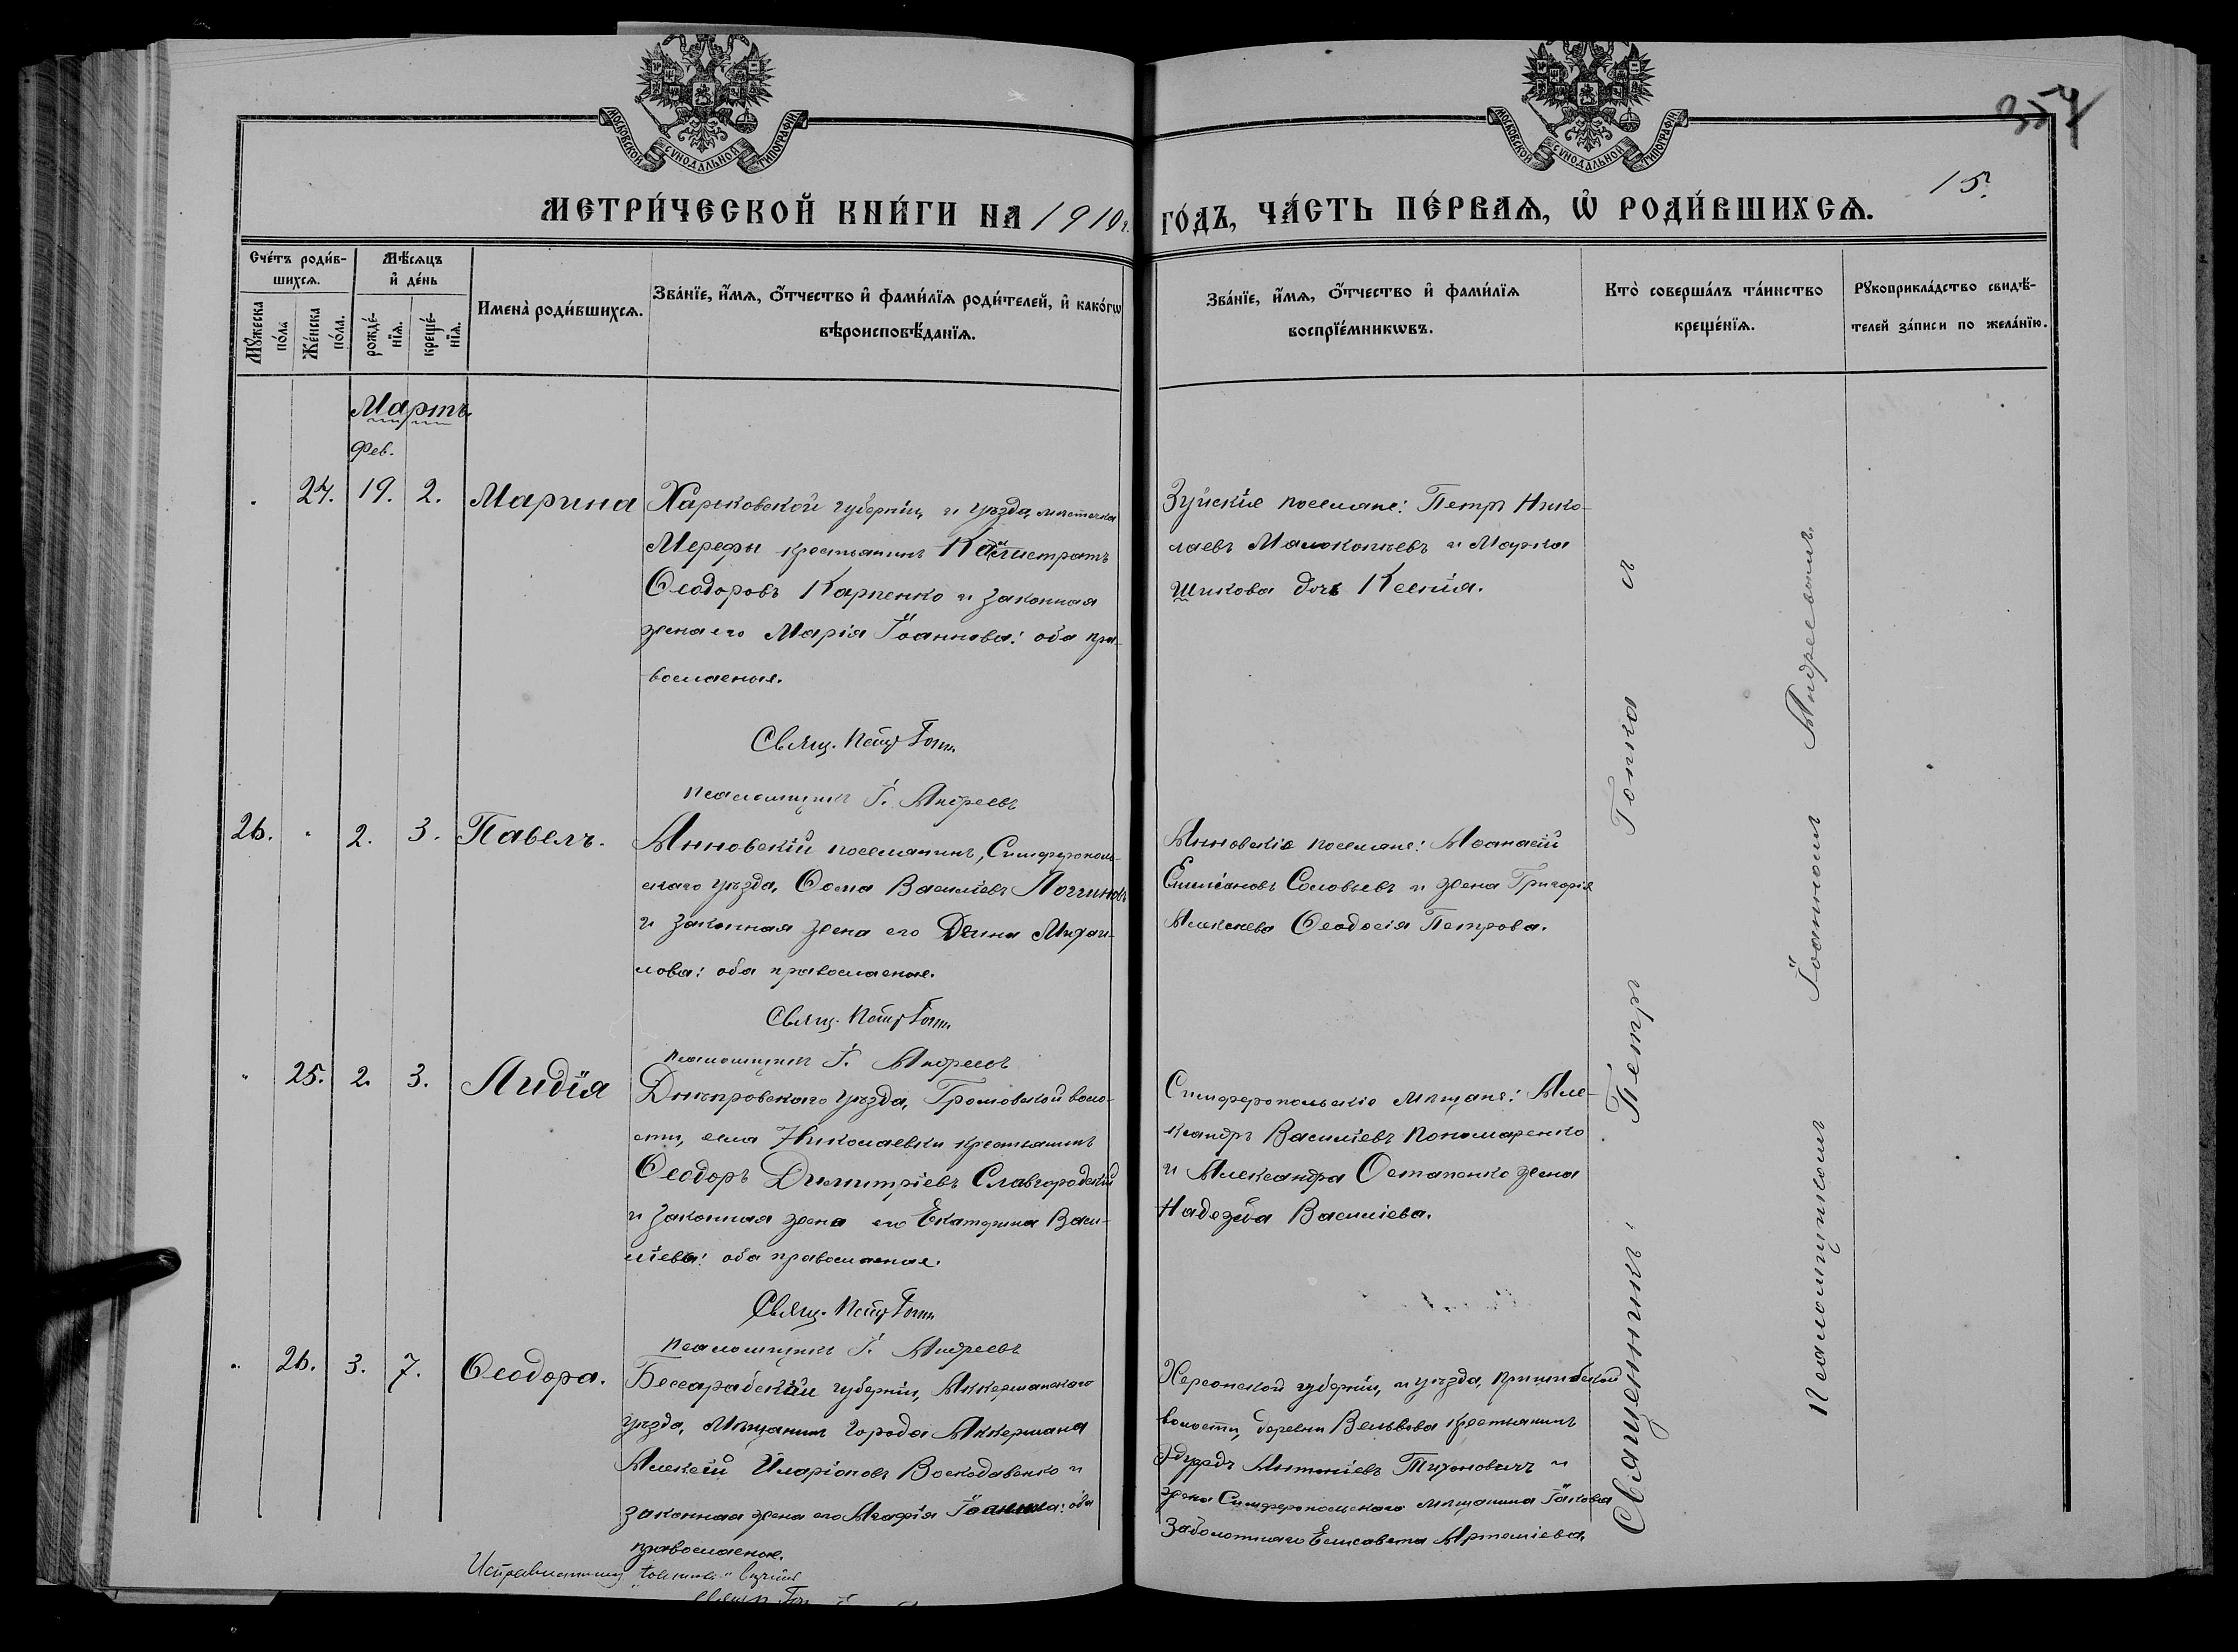 МОСКОВСКОЙ СѴНОДАЛЬНОЙ ТИПОГРАФІИ
МОСКОВСКОЙ СѴНОДАЛЬНОЙ ТИПОГРАФІИ
354
15.
МЕТРИ́ЧЕСКОЙ КНИ́ГИ НА 1910 г. ГО́ДЪ, ЧА́СТЬ ПЕ́РВАѦ, Ѡ҆ РОДИ́ВШИХСѦ.
Сче́тъ роди́в-
шихсѧ.
Мꙋ́жеска по́ла
Же́нска по́ла.
Мѣ́сѧцъ
и҆ де́нь
рожде́-
нїѧ.
креще́-
нїѧ.
Имена̀ роди́вшихсѧ.
Зва́нїе, и҆́мѧ, ѻ҆́тчество и҆ фами́лїѧ роди́телей, и҆ како́гѡ
вѣроисповѣ́данїѧ.
Зва́нїе, и҆́мѧ, ѻ҆́тчество и҆ фами́лїѧ
воспрїе́мникѡвъ.
Кто̀ соверша́лъ та́инство
креще́нїѧ.
Рꙋкоприкла́дство свидѣ́-
телей за́писи по жела́нїю.
Мартъ
Фев.
24. 19. 2. Марина
Харьковской губерніи, и уѣзда, мѣстечка
Мерефы крестьянинъ Калистратъ
Ѳеодоровъ Карпенко и законная
жена его Марія Іоаннова: оба пра-
вославные.
Свящ. Петръ Гопка
Псаломщикъ І. Андреевъ
Зуйскіе поселяне: Петръ Нико-
лаевъ и Марка
Шикова дочь Ксенія.
26. 2. 3. Павелъ.
Анновскій поселянинъ, Симферополь-
скаго уѣзда, Ѳома Васильевъ Логгиновъ
и законная жена его Михаи-
лова: оба православные.
Свящ. Петръ Гопка
Псаломщикъ І. Андреевъ
Анновскіе поселяне: Аѳанасій
Емиліановъ Соловьевъ и жена Григорія
Алексеева Ѳеодосія Петрова.
25. 2. 3. Лидія
Днѣпровскаго уѣзда, Громовской воло-
сти, села Николаевки крестьянинъ
Ѳеодоръ Димитріевъ Славгородскій
и законная жена его Екатерина Васи-
ліева: оба православные.
Свящ. Петръ Гопка
Псаломщикъ І. Андреевъ
Симферопольскіе мѣщане: Але-
ксандръ Василіевъ Пономаренко
и Александра Остапенко жена
Надежда Василіева.
26. 3. 7. Ѳеодора.
Бессарабской губерніи, Аккерманскаго
уѣзда, мѣщанинъ города Аккермана
Алексій Иларіоновъ Воскодавенко и
законная жена его Агафія Іоаннова: оба
православные.
Херсонской губерніи, и уѣзда,
волости, деревни крестьянинъ
Антоніевъ Тихоновичъ и
жена Симферопольскаго мѣщанина Іакова
Заболотнаго Елисавета Артеміева.
Священникъ: Петръ Гопка и
Псаломщикомъ Іоанномъ Андреевымъ.